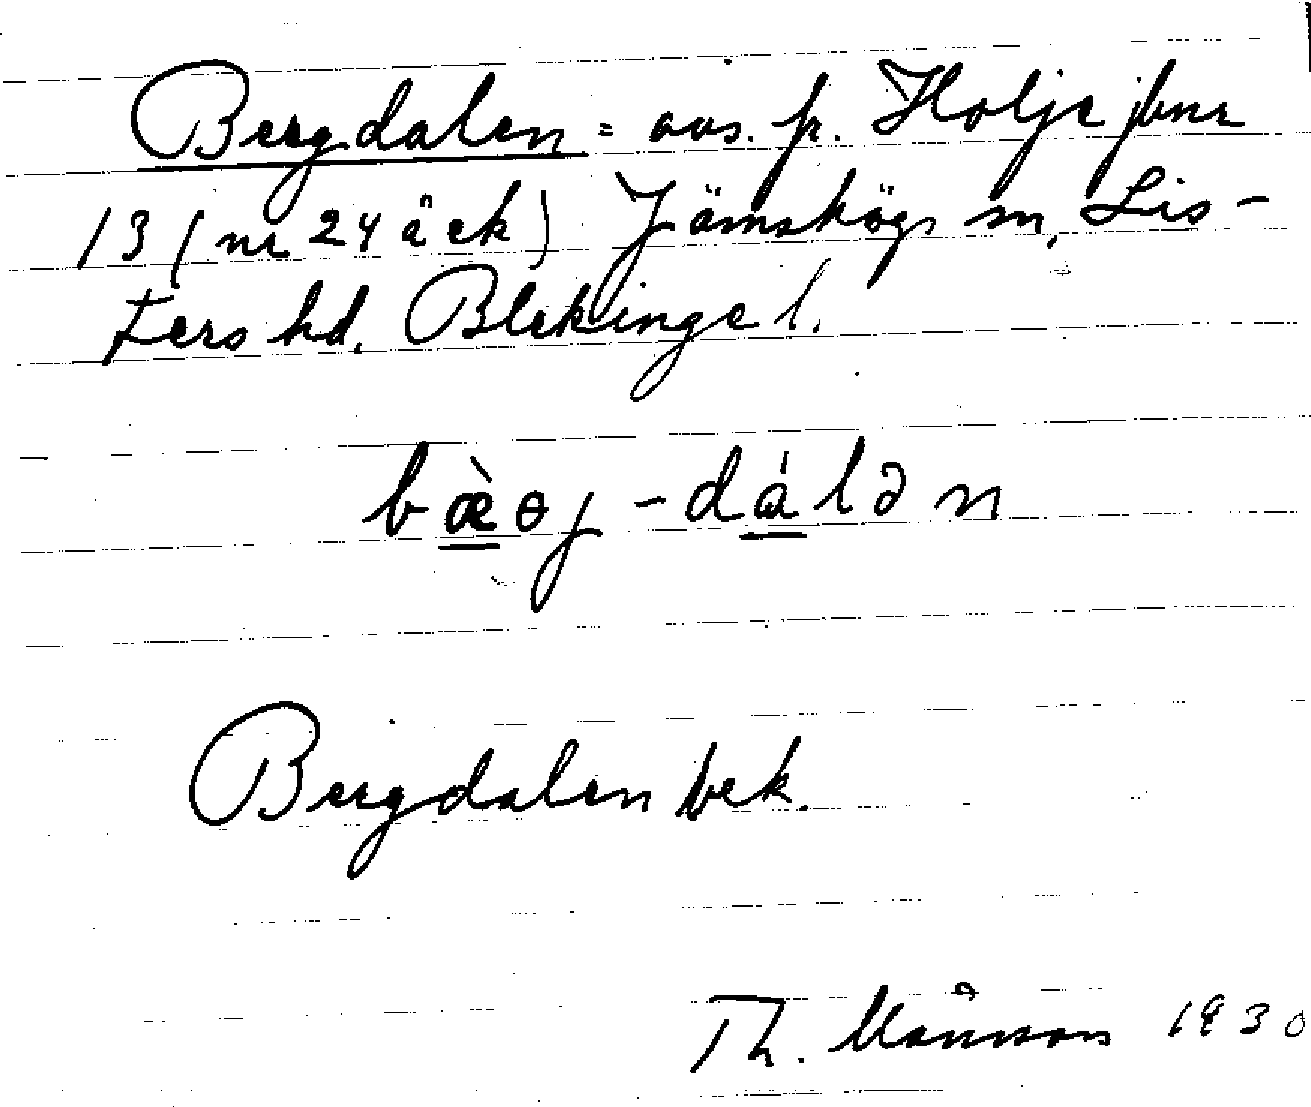 Bergdalen = avs. fr. Holje jbnr
13 (nr 24 å ek) Jämshögs sn, Lis-
ters hd. Blekinge l.
bæ̀ɵj-dálən
Bergdalen bek.
Th. Månsson 1930